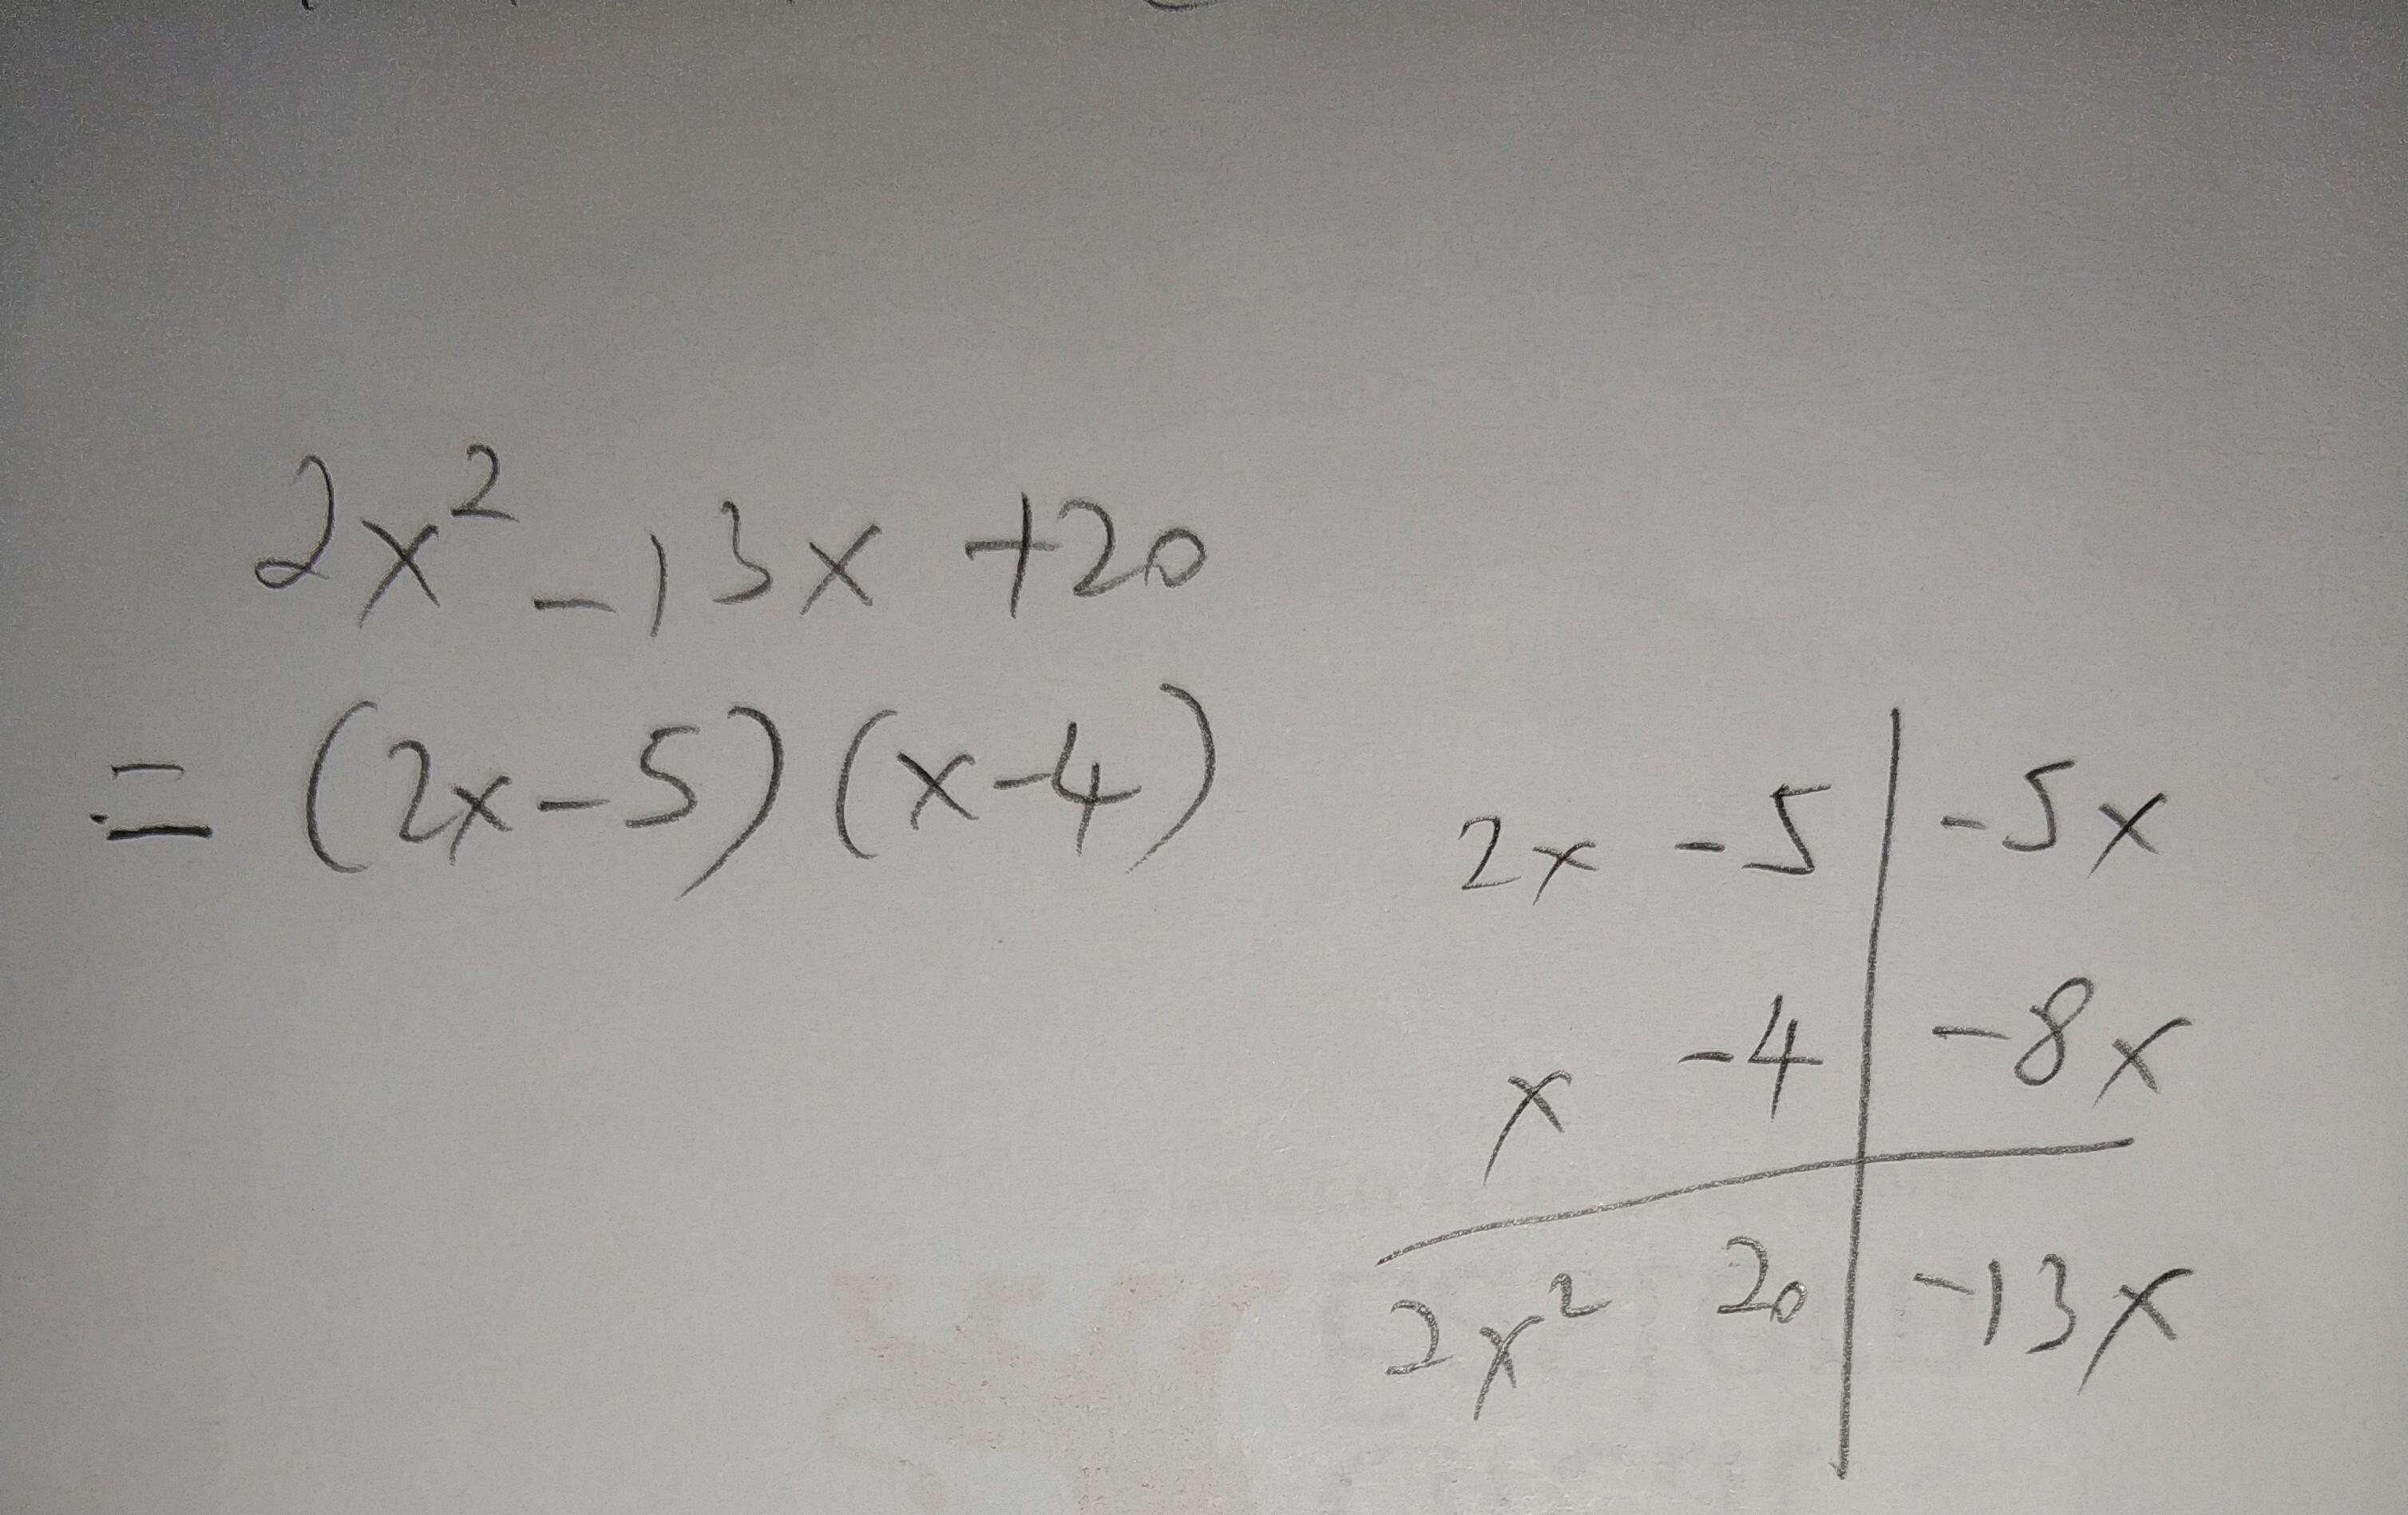 2x² - 13x + 20
= (2x - 5)(x - 4)
2x -5 | -5x
x -4 | -8x
2x² 20 | -13x